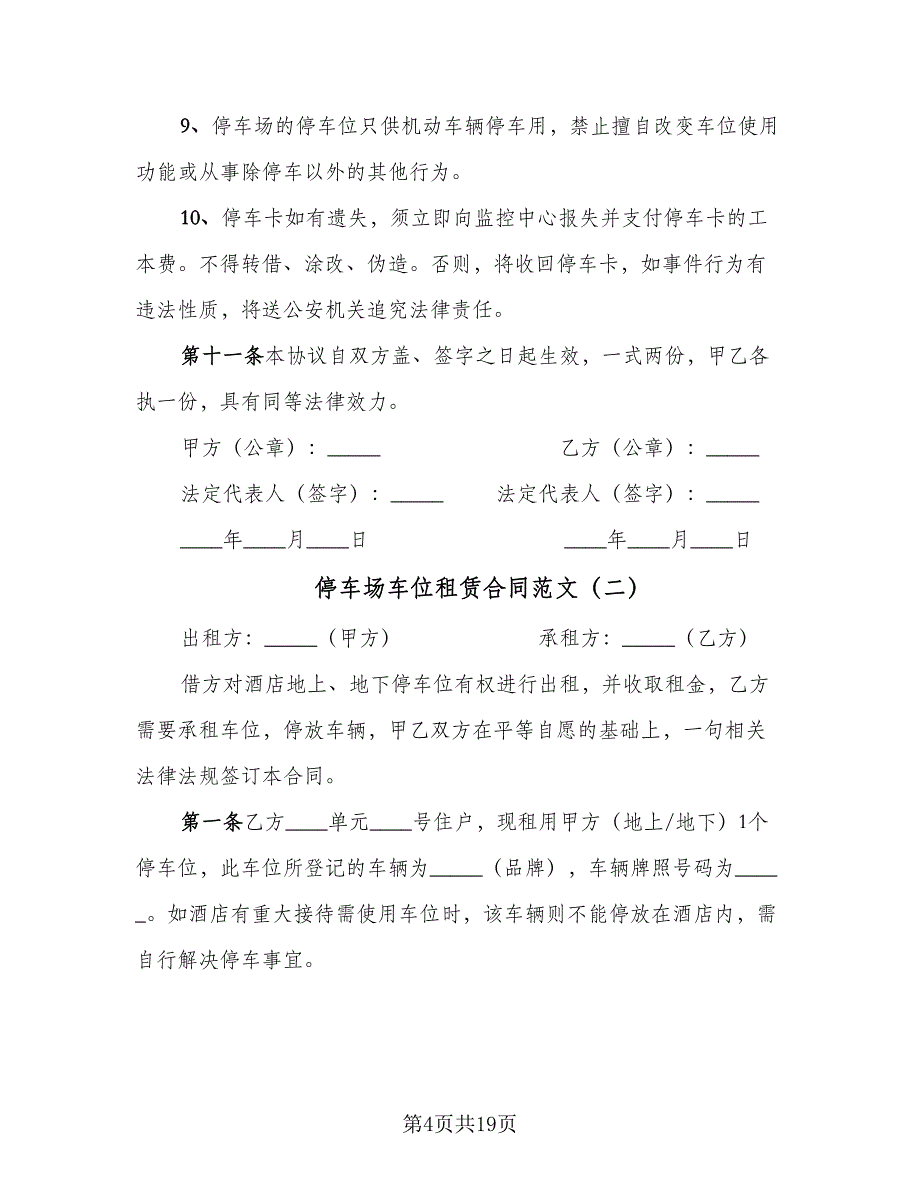 9、停车场的停车位只供机动车辆停车用，禁止擅自改变车位使用
功能或从事除停车以外的其他行为。
10、停车卡如有遗失，须立即向监控中心报失并支付停车卡的工
本费。不得转借、涂改、伪造。否则，将收回停车卡，如事件行为有
违法性质，将送公安机关追究法律责任。
第十一条本协议自双方盖、签字之日起生效，一式两份，甲乙各
执一份，具有同等法律效力。
甲方（公章）：_____ 乙方（公章）：_____
法定代表人（签字）：_____ 法定代表人（签字）：_____
____年____月____日 ____年____月____日
停车场车位租赁合同范文（二）
出租方：_____（甲方） 承租方：_____（乙方）
借方对酒店地上、地下停车位有权进行出租，并收取租金，乙方
需要承租车位，停放车辆，甲乙双方在平等自愿的基础上，一句相关
法律法规签订本合同。
第一条乙方____单元____号住户，现租用甲方（地上/地下）1个
停车位，此车位所登记的车辆为_____（品牌），车辆牌照号码为____
_。如酒店有重大接待需使用车位时，该车辆则不能停放在酒店内，需
自行解决停车事宜。
第4页共19页